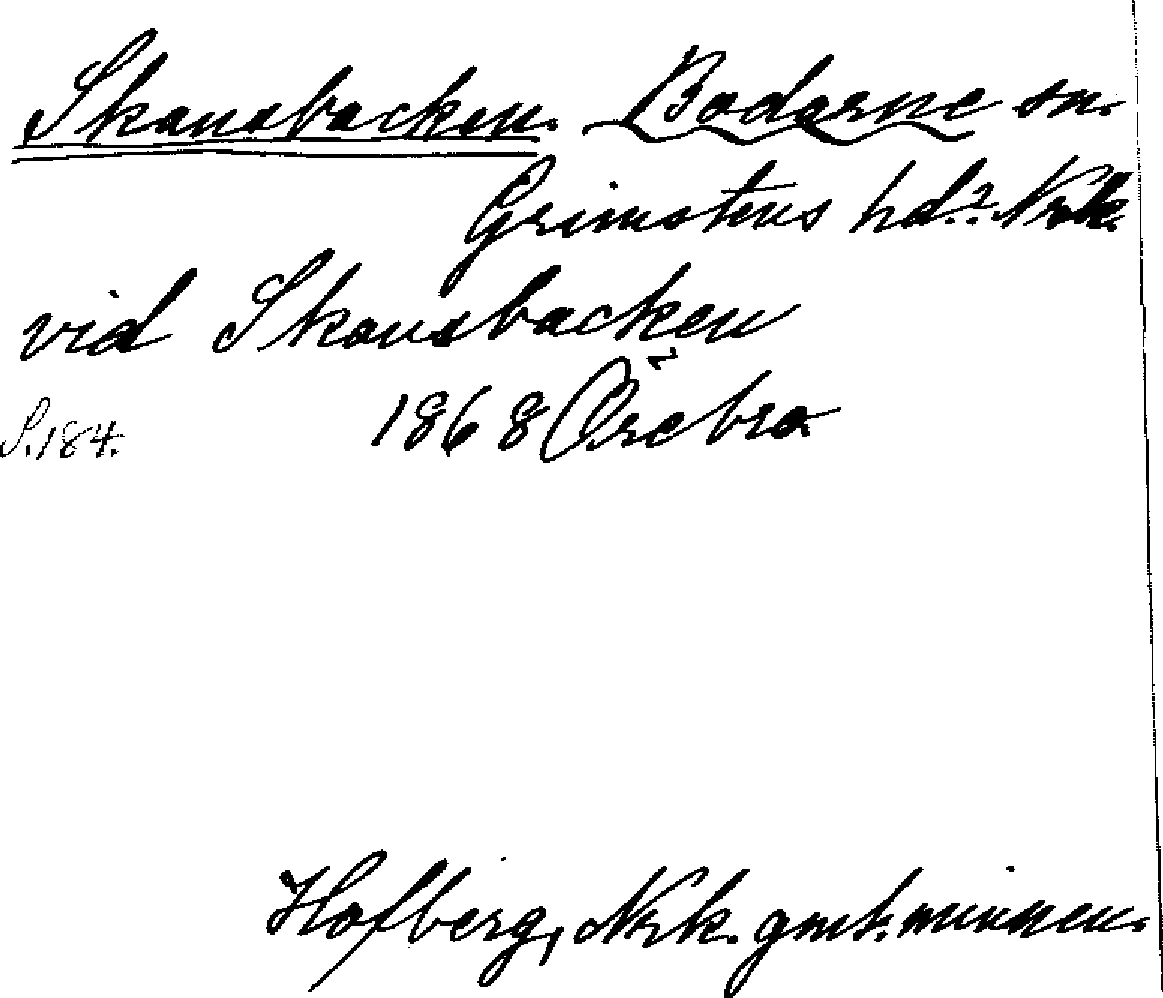 Skansbacken. Bodarne sn.
Grimstens hd.? Nrk.
vid Skansbacken
S. 184. 1868 Örebro
Hofberg, Nrk. gml. minnen.